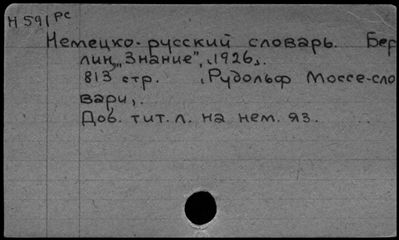 Н 591 РС
Немецко-русский словарь. Бер
лин, „Знание", 1926.
813 стр. Рудольф Моссе-сло
вари,.
Доб. тит. л. на нем. яз.